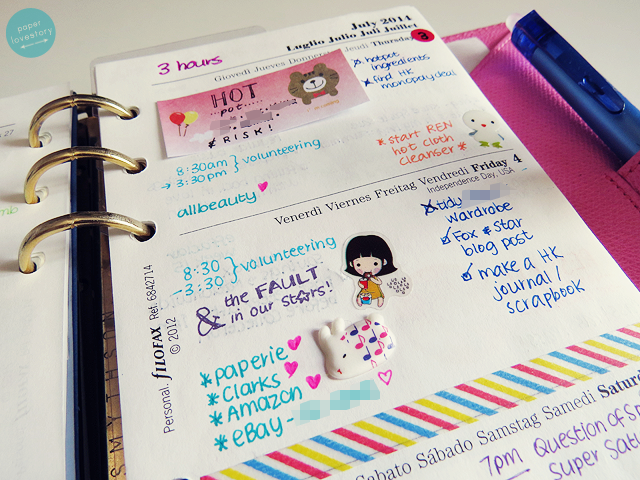 paper
lovestory
July 2014
Luglio Julio Juli Juillet
3 hours
Giovedì Jueves Donnerstag Jeudi Thursday
a
HOT
pot....
& RISK!
hotpot
ingredients
* find HK
monopoly deal
* start REN
hot cloth
cleanser *
8:30am
→ 3:30pm } volunteering
allbeauty
Venerdì Viernes Freitag Vendredi Friday 4
Independence Day, USA
tidy
wardrobe
Fox & star
blog post
make a HK
journal/
scrapbook
8:30
-3:30 } volunteering
& the FAULT
in our stars!
* paperie
* Clarks
* Amazon
* eBay -
Personal. fILOFAX Ref. 6842714
© 2012
SMYTHSON
27
Sabato Sábado Samstag Samedi
7pm Question of S
Super Sat